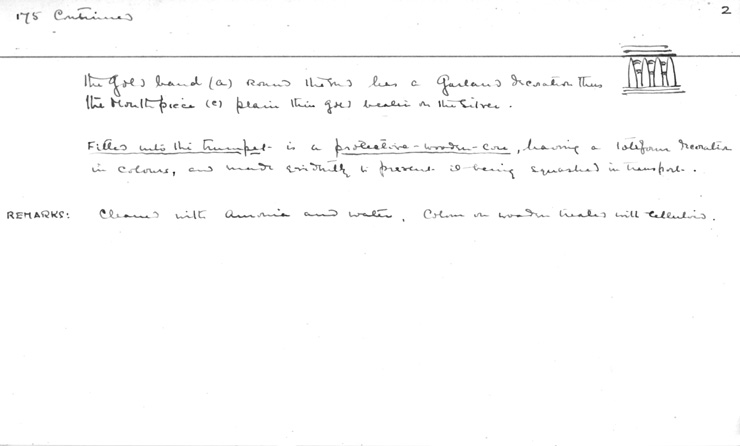 175 Continued
2
The gold band (a) round the end has a garland decoration thus
the mouthpiece (c) plain thin gold bead on the silver.
Fitted into the trumpet is a protective-wooden-core, having a lotiform decoration
in colours, and made evidently to prevent it being squashed in transport.
REMARKS: Cleaned with Amonia and water. Colour on wooden treated with celluloid.